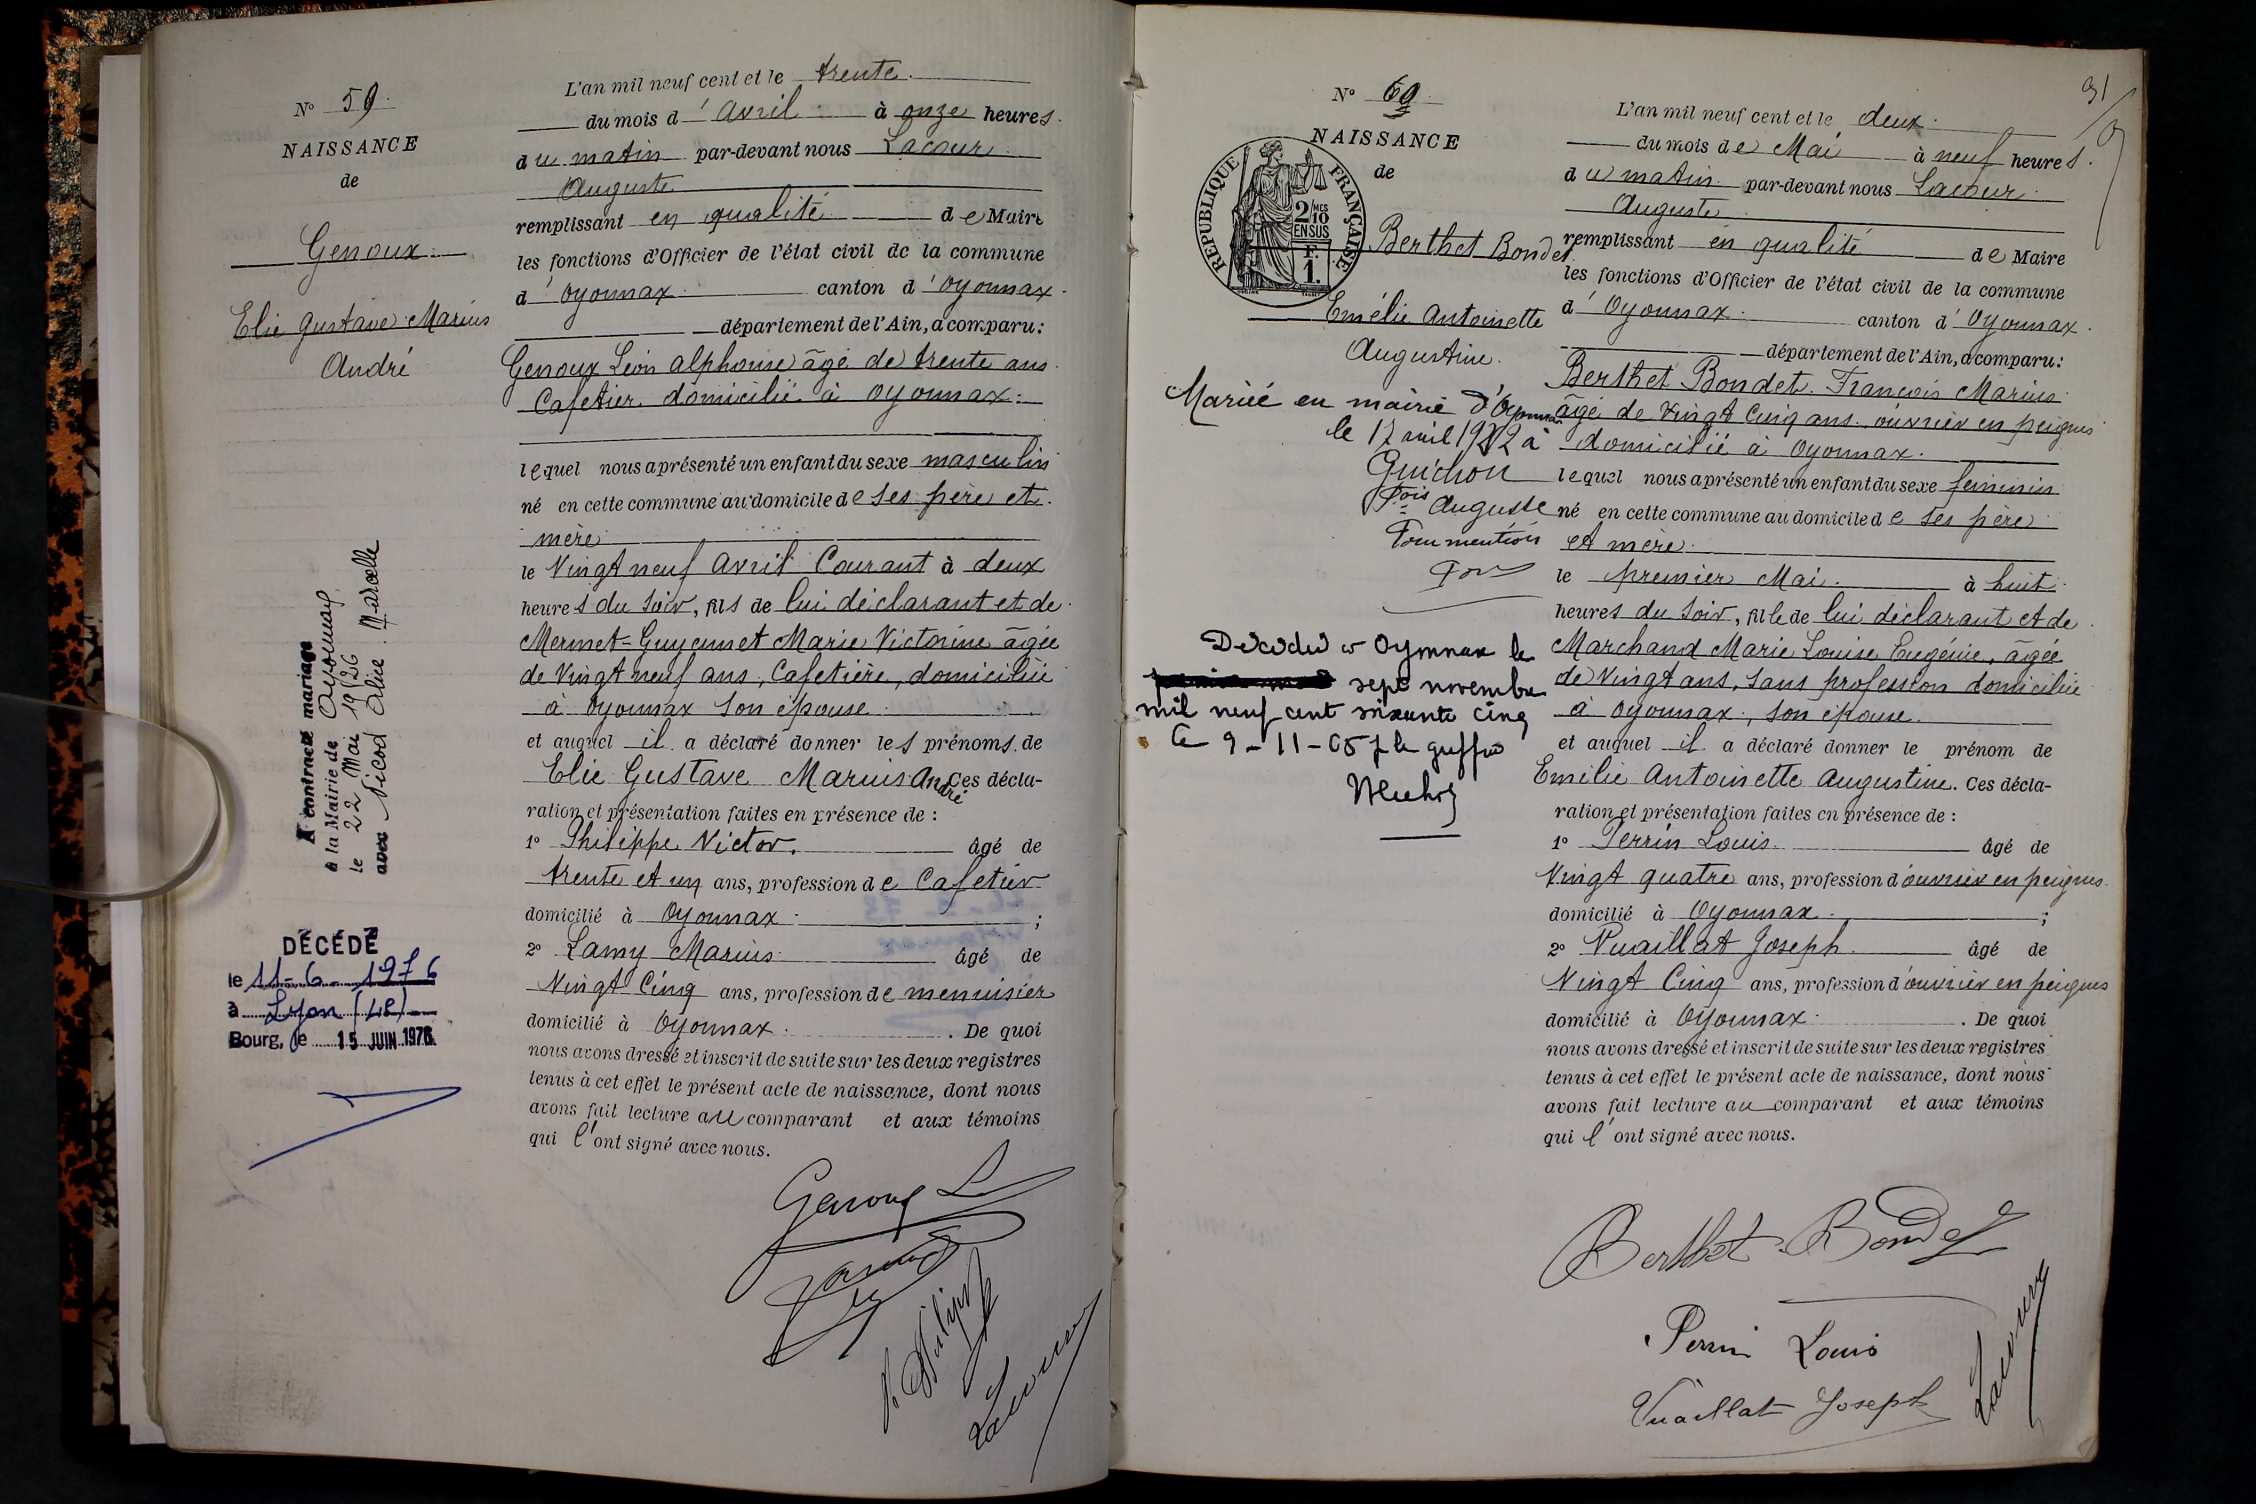 N° 59.
NAISSANCE
de
Genoux
Elie Gustave Marius
André
A contracté mariage
à la Mairie de Oyonnax
le 22 Mai 1926
avec Nicod Alice Marcelle
DÉCÉDÉ
le 11-6-1976
à Lyon (4e)
Bourg, le 15 JUIN 1976
L'an mil neuf cent et le trente.
du mois d'avril à onze heures.
du matin par-devant nous Lacour
Auguste
remplissant en qualité de Maire
les fonctions d'Officier de l'état civil de la commune
d'Oyonnax canton d'Oyonnax.
département de l'Ain, a comparu:
Genoux Léon alphonse âgé de trente ans.
Cafetier domicilié à Oyonnax.
lequel nous a présenté un enfant du sexe masculin
né en cette commune au domicile de ses père et
mère
le Vingt neuf Avril Courant à deux
heures du soir, fils de lui déclarant et de
Mermet-Guyennet Marie Victorine âgée
de Vingt neuf ans, Cafetière, domiciliée
à Oyonnax son épouse
et auquel il a déclaré donner les prénoms de
Elie Gustave Marius André Ces décla-
ration et présentation faites en présence de :
1° Philippe Victor. âgé de
trente et un ans, profession de Cafetier
domicilié à Oyonnax ;
2° Lamy Marius âgé de
Vingt Cinq ans, profession de menuisier
domicilié à Oyonnax. De quoi
nous avons dressé et inscrit de suite sur les deux registres
tenus à cet effet le présent acte de naissance, dont nous
avons fait lecture au comparant et aux témoins
qui l'ont signé avec nous.
Genoux L
Lamy
V. Philippe
Lacour
31
N° 60
NAISSANCE
de
RÉPUBLIQUE FRANÇAISE
2/10 MES
EN SUS
F.
1.
Berthet Bondet
Emélie Antoinette
Augustine.
Mariée en mairie d'Oyonnax
le 17 avril 1922 à
Guichon
Fois Auguste
Pour mention
Décédée à Oyonnax le
sept novembre
mil neuf cent soixante cinq
Le 9-11-65 le greffier
L'an mil neuf cent et le deux.
du mois de Mai à neuf heures.
du matin par-devant nous Lacour
Auguste
remplissant en qualité de Maire
les fonctions d'Officier de l'état civil de la commune
d'Oyonnax canton d'Oyonnax.
département de l'Ain, a comparu:
Berthet Bondet François Marius
âgé de Vingt Cinq ans ouvrier en peignes
domicilié à Oyonnax.
lequel nous a présenté un enfant du sexe feminin
né en cette commune au domicile de ses père
et mère
le premier Mai. à huit
heures du soir, fille de lui déclarant et de
Marchand Marie Louise Eugénie, âgée
de Vingt ans, sans profession domiciliée
à Oyonnax, son épouse
et auquel il a déclaré donner le prénom de
Emélie Antoinette Augustine. Ces décla-
ration et présentation faites en présence de :
1° Perrin Louis. âgé de
Vingt quatre ans, profession d'ouvrier en peignes.
domicilié à Oyonnax. ;
2° Vuaillat Joseph. âgé de
Vingt Cinq ans, profession d'ouvrier en peignes
domicilié à Oyonnax. De quoi
nous avons dressé et inscrit de suite sur les deux registres
tenus à cet effet le présent acte de naissance, dont nous
avons fait lecture au comparant et aux témoins
qui l'ont signé avec nous.
Berthet-Bondet
Perrin Louis
Vuaillat Joseph
Lacour